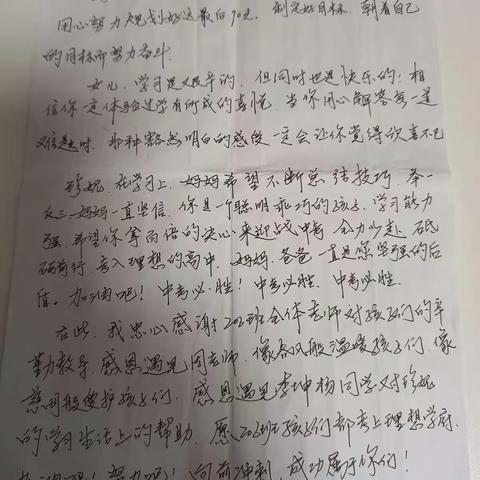 用心努力规划好这最后90天. 制定好目标, 朝着自己
的目标而努力奋斗.
女儿, 学习是艰辛的, 但同时也是快乐的! 相
信你一定体验过学有所成的喜悦 当你用心解答每一道
难题时, 那种豁然明白的感觉一定会让你觉得欣喜不已
珍妮, 在学习上, 妈妈希望不断总结技巧, 举一
反三 妈妈一直坚信, 你是一个聪明乖巧的孩子, 学习能力
强, 希望你等而倍的决心来迎战中考 全力以赴, 砥
砺前行, 考入理想的高中, 妈妈、爸爸一直是您坚强的后
盾. 加油吧! 中考必胜! 中考必胜, 中考必胜.
在此, 我忠心感谢202班全体老师对孩子们的辛
勤教导, 感恩遇见周老师, 像春风般温暖孩子们, 像
慈母般爱护孩子们, 感恩遇见李坤杨同学对珍妮
的学习生活上的帮助. 愿202班孩子们都考上理想学府.
加油吧! 努力吧! 向前冲刺, 成功属于你们!